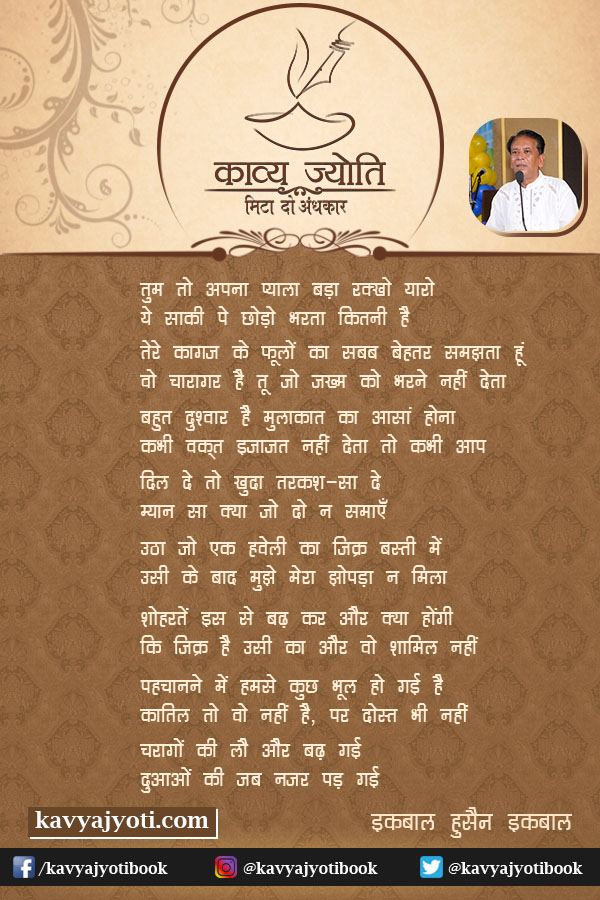 काव्य ज्योति
मिटा दो अंधकार
तुम तो अपना प्याला बड़ा रक्खो यारो
ये साकी पे छोड़ो भरता कितनी है
तेरे कागज के फूलों का सबब बेहतर समझता हूं
वो चारागर है तू जो जख्म को भरने नहीं देता
बहुत दुश्वार है मुलाकात का आसां होना
कभी वक्त इजाजत नहीं देता तो कभी आप
दिल दे तो खुदा तरकश-सा दे
म्यान सा क्या जो दो न समाएँ
उठा जो एक हवेली का जिक्र बस्ती में
उसी के बाद मुझे मेरा झोपड़ा न मिला
शोहरतें इस से बढ़ कर और क्या होंगी
कि जिक्र है उसी का और वो शामिल नहीं
पहचानने में हमसे कुछ भूल हो गई है
कातिल तो वो नहीं है, पर दोस्त भी नहीं
चरागों की लौ और बढ़ गई
दुआओं की जब नजर पड़ गई
kavyajyoti.com
इकबाल हुसैन इकबाल
/kavyajyotibook
@kavyajyotibook
@kavyajyotibook